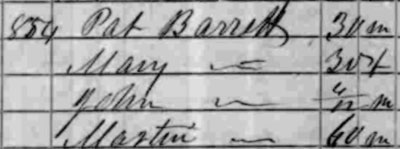 884 Pat Barrett 30 m
Mary — 30 f
John — 4/12 m
Martin — 60 m